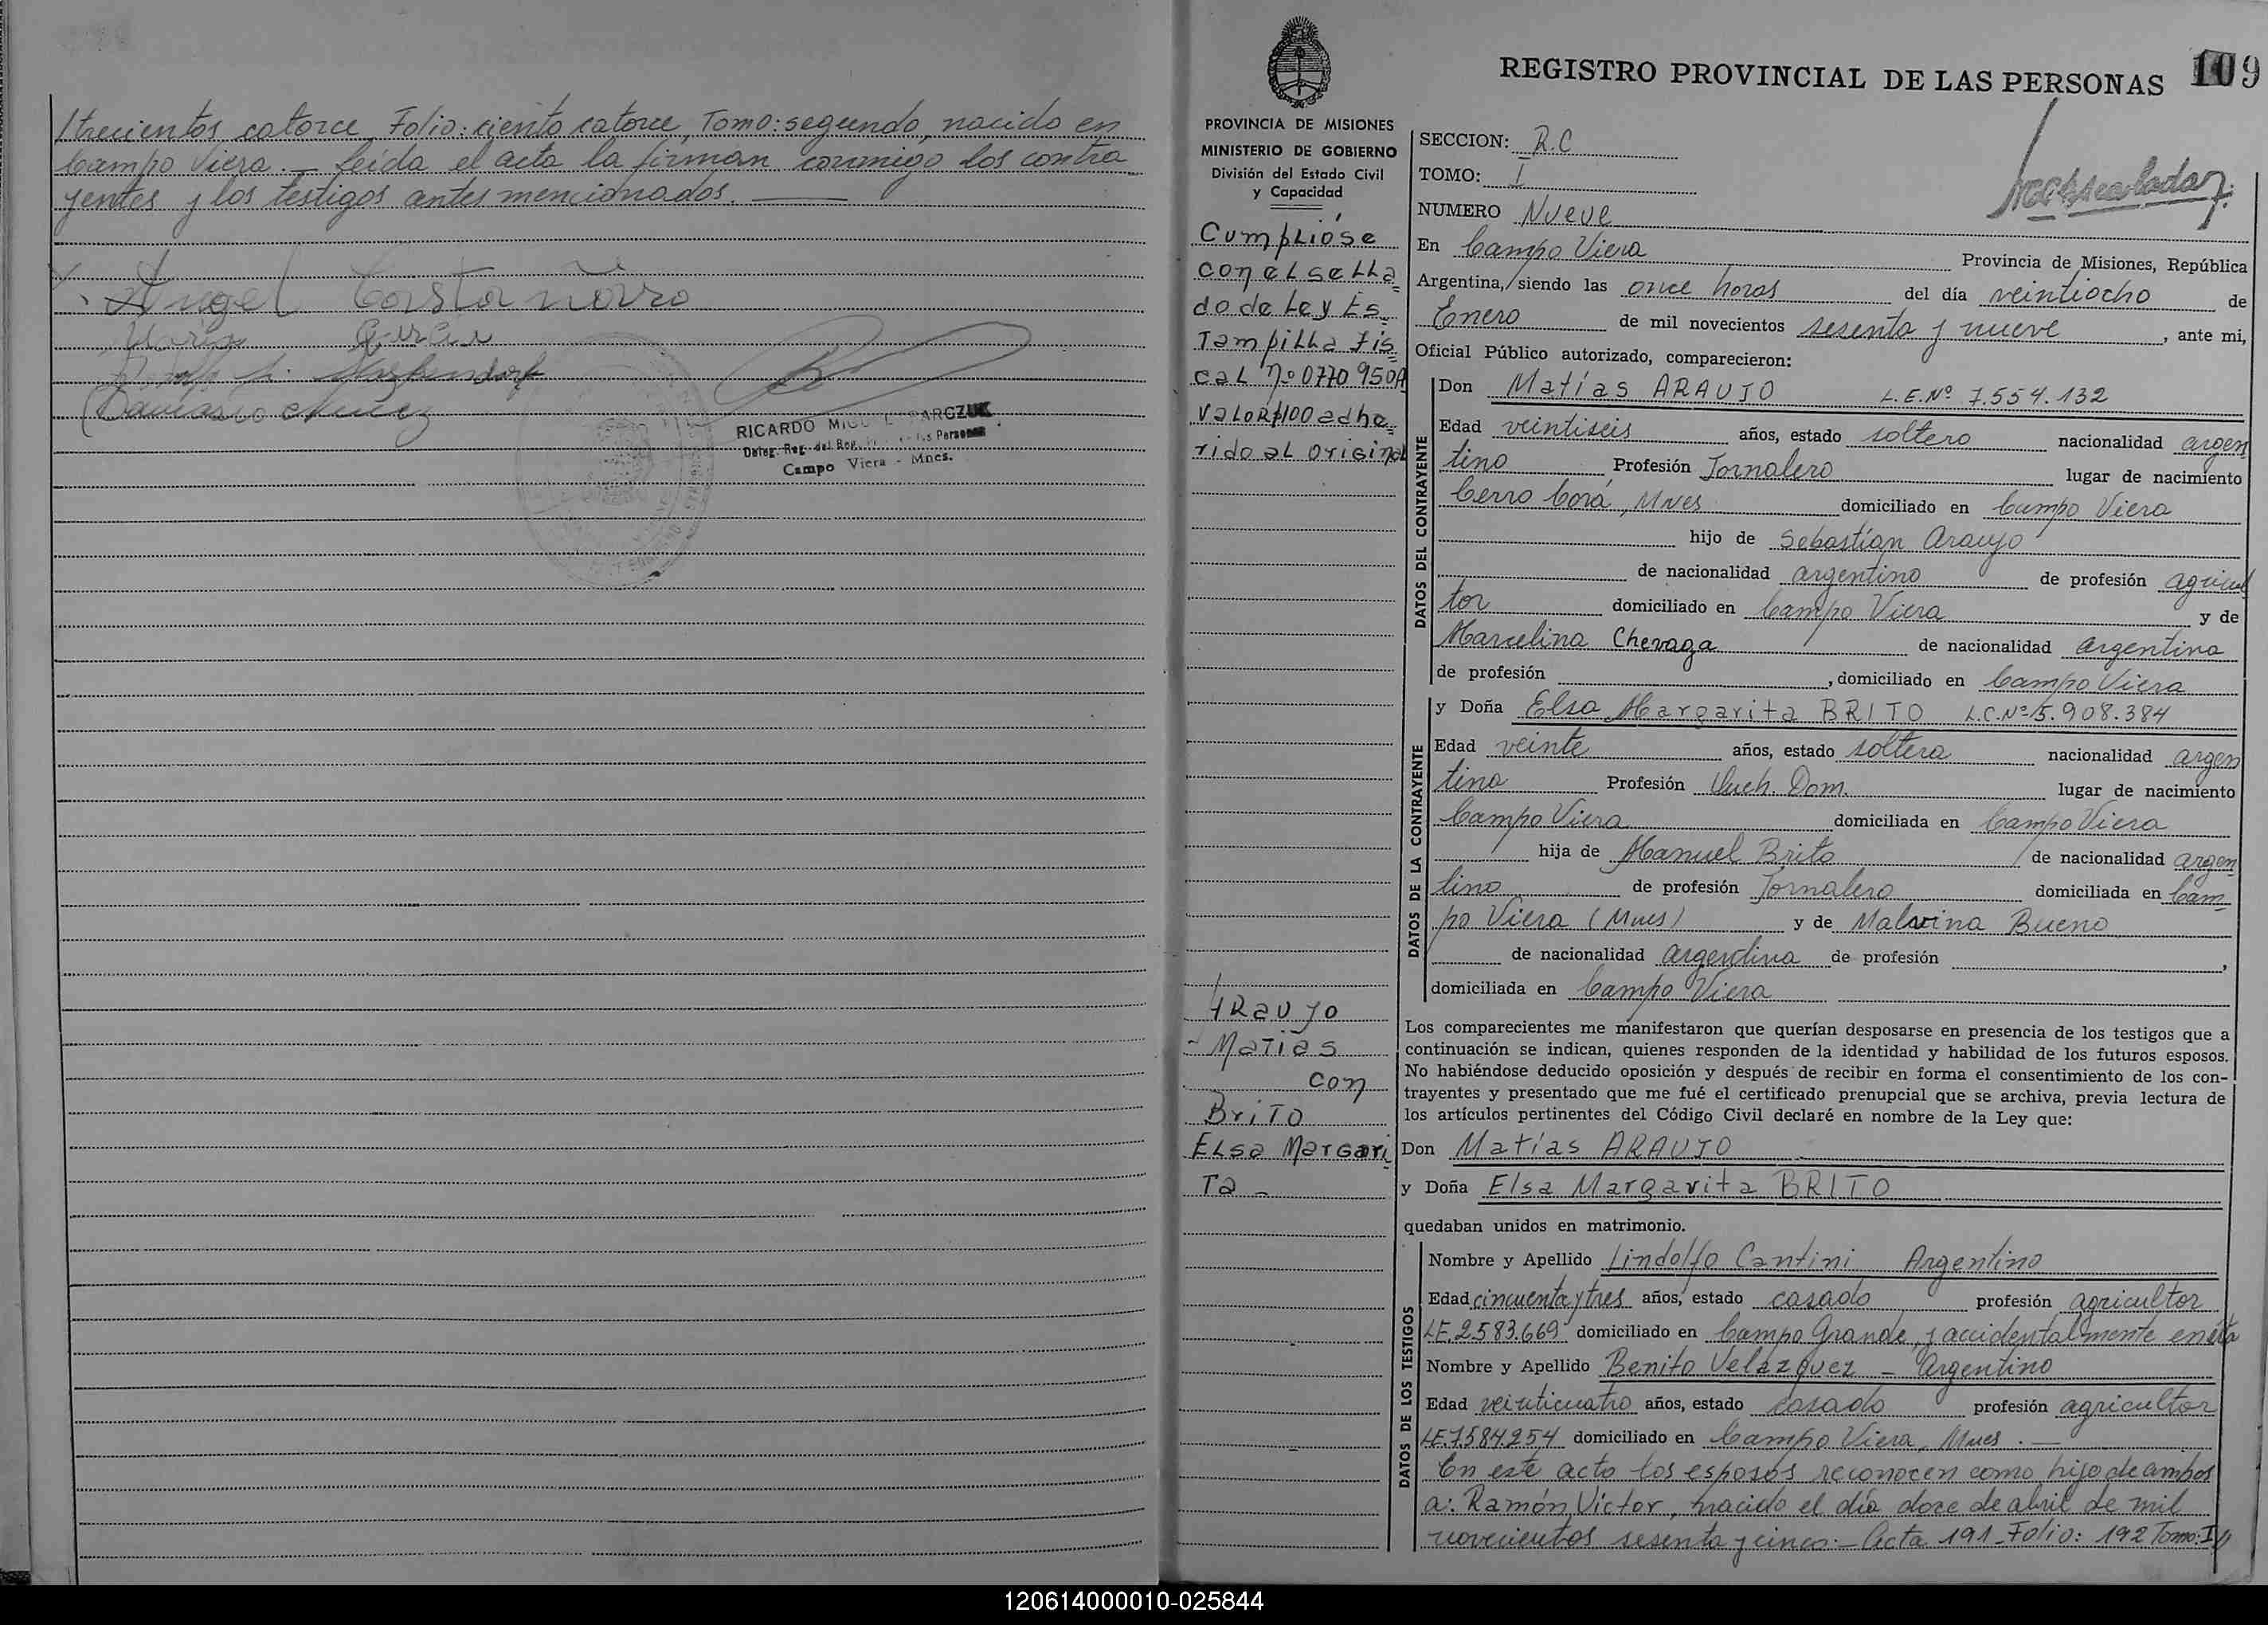 /trecientos catorce, Folio: ciento catorce, Tomo: segundo, nacido en
Campo Viera. _ Leída el acta la firman conmigo los contra_
yentes y los testigos antes mencionados. ___
Angel
Nuñez
RICARDO
Deleg. Reg. del Reg. Personas
Campo Viera - Mnes.
REGISTRO PROVINCIAL DE LAS PERSONAS 109
PROVINCIA DE MISIONES
MINISTERIO DE GOBIERNO
División del Estado Civil
y Capacidad
Cumplióse
con el sella=
do de Ley Es=
Tampilla Fis=
cal nº 0770950A
Valor $100 adhe=
rido al original
Araujo
Matias
con
Brito
Elsa Margari
Ta _
SECCION: R.C
TOMO: I
NUMERO Nueve
En Campo Viera Provincia de Misiones, República
Argentina, siendo las once horas del día veintiocho de
Enero de mil novecientos sesenta y nueve, ante mi,
Oficial Público autorizado, comparecieron:
DATOS DEL CONTRAYENTE
Don Matías ARAUJO L.E.Nº 7.554.132
Edad veintiseis años, estado soltero nacionalidad argen
tino Profesión Jornalero lugar de nacimiento
Cerro Corá, Mnes domiciliado en Campo Viera
hijo de Sebastián Araujo
de nacionalidad argentino de profesión agricul
tor domiciliado en Campo Viera y de
Marcelina Chevaga de nacionalidad argentina
de profesión , domiciliado en Campo Viera
DATOS DE LA CONTRAYENTE
y Doña Elsa Margarita BRITO L.C.Nº 5.908.384
Edad veinte años, estado soltera nacionalidad argen
tina Profesión Dom. lugar de nacimiento
Campo Viera domiciliada en Campo Viera
hija de Manuel Brito de nacionalidad argen
tino de profesión Jornalero domiciliada en Cam_
po Viera (Mnes) y de Malvina Bueno
de nacionalidad argentina de profesión ,
domiciliada en Campo Viera
Los comparecientes me manifestaron que querían desposarse en presencia de los testigos que a
continuación se indican, quienes responden de la identidad y habilidad de los futuros esposos.
No habiéndose deducido oposición y después de recibir en forma el consentimiento de los con-
trayentes y presentado que me fué el certificado prenupcial que se archiva, previa lectura de
los artículos pertinentes del Código Civil declaré en nombre de la Ley que:
Don Matías ARAUJO
y Doña Elsa Margarita BRITO
quedaban unidos en matrimonio.
DATOS DE LOS TESTIGOS
Nombre y Apellido Lindolfo Cantini Argentino
Edad cincuenta y tres años, estado casado profesión agricultor
LE.2.583.669 domiciliado en Campo Grande, y accidentalmente en ésta
Nombre y Apellido Benito Velazquez - Argentino
Edad veinticuatro años, estado casado profesión agricultor
LE.7.584.254 domiciliado en Campo Viera, Mnes. _
En este acto los esposos reconocen como hijo de ambos
a: Ramón Victor, nacido el día doce de abril de mil
novecientos sesenta y cinco.- Acta 191 - Folio: 192 Tomo: I
120614000010-025844